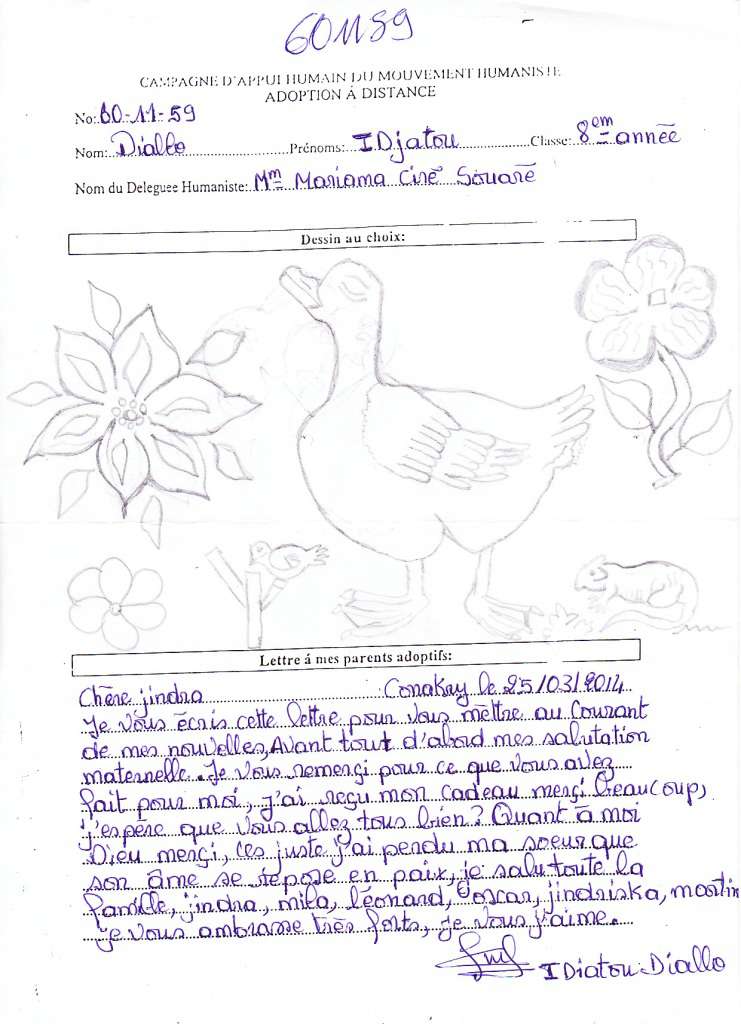 601159
CAMPAGNE D'APPUI HUMAIN DU MOUVEMENT HUMANISTE
ADOPTION À DISTANCE
No: 60-11-59
Nom: Diallo Prénoms: IDjatou Classe: 8em année
Nom du Deleguee Humaniste: Mm Mariama Ciré Souaré
Dessin au choix:
Lettre á mes parents adoptifs:
Chère jindra Conakay le 25/03/2014
Je vous écris cette lettre pour vous mèttre au Courant
de mes nouvelles, Avant tout d'abord mes salutation
maternelle. Je vous remerçi pour ce que vous avez
fait pour moi, j'ai reçu mon cadeau merçi beaucoup,
j'espère que vous allez tous bien? Quant à moi
Dieu merçi, ces juste j'ai perdu ma soeur que
son âme se repose en paix, je salu toute la
famille, jindra, mila, léonard, oscar, jindriska, martin
je vous ambrasse très forts, je vous j'aime.
IDiatou Diallo